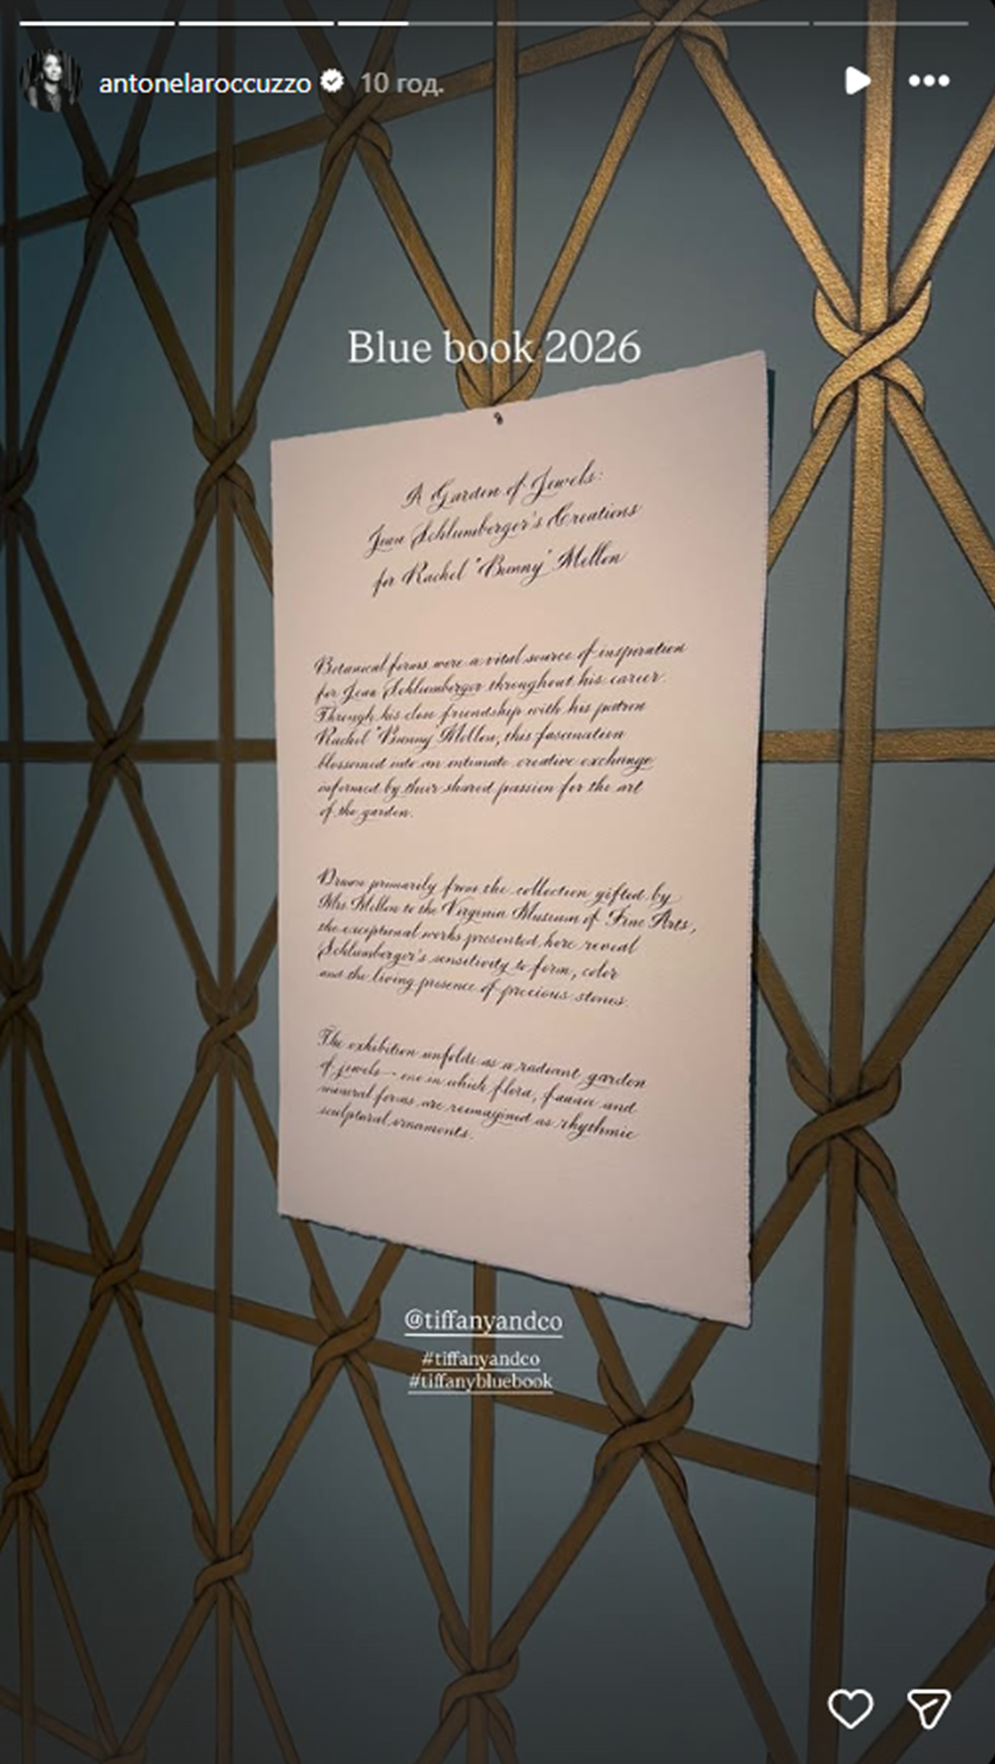 antonelaroccuzzo 10 год.
Blue book 2026
A Garden of Jewels:
Jean Schlumberger's Creations
for Rachel "Bunny" Mellon
Botanical forms were a vital source of inspiration
for Jean Schlumberger throughout his career.
Through his close friendship with his patron
Rachel "Bunny" Mellon, this fascination
blossomed into an intimate creative exchange
informed by their shared passion for the art
of the garden.
Drawn primarily from the collection gifted by
Mrs Mellon to the Virginia Museum of Fine Arts,
the exceptional works presented here reveal
Schlumberger's sensitivity to form, color
and the living presence of precious stones.
The exhibition unfolds as a radiant garden
of jewels — one in which flora, fauna and
mineral forms are reimagined as rhythmic
sculptural ornaments.
@tiffanyandco
#tiffanyandco
#tiffanybluebook